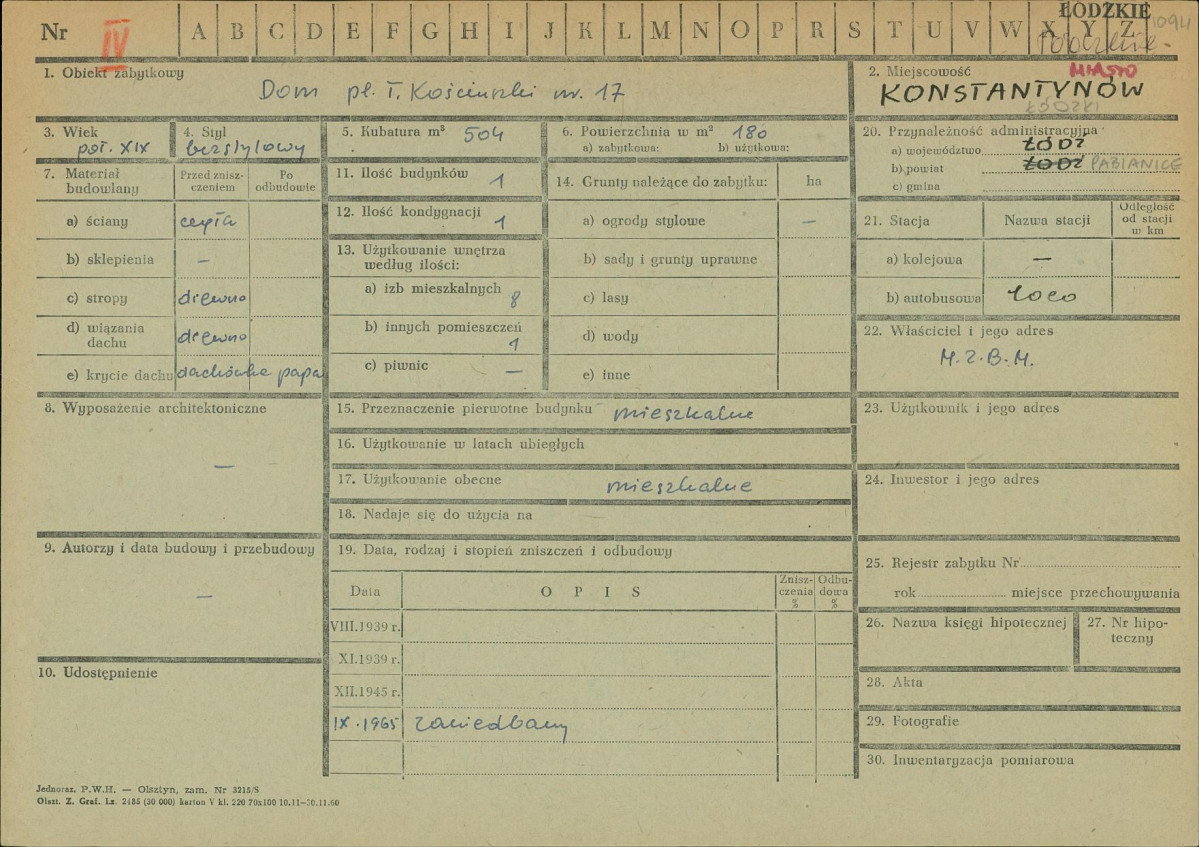 ŁÓDZKIE
1094
Nr IV A B C D E F G H I J K L M N O P R S T U V W X Y Z
1. Obiekt zabytkowy
Dom pl. T. Kościuszki nr. 17
2. Miejscowość MIASTO
KONSTANTYNÓW
ŁÓDZKI
3. Wiek
poł. XIX
4. Styl
bezstylowy
5. Kubatura m³ 504
6. Powierzchnia w m² 180
a) zabytkowa: b) użytkowa:
7. Materiał budowlany
Przed zniszczeniem
Po odbudowie
a) ściany cegła
b) sklepienia –
c) stropy drewno
d) wiązania dachu drewno
e) krycie dachu dachówka papa
8. Wyposażenie architektoniczne
–
9. Autorzy i data budowy i przebudowy
–
10. Udostępnienie
11. Ilość budynków 1
12. Ilość kondygnacji 1
13. Użytkowanie wnętrza według ilości:
a) izb mieszkalnych 8
b) innych pomieszczeń 1
c) piwnic –
14. Grunty należące do zabytku: ha
a) ogrody stylowe –
b) sady i grunty uprawne
c) lasy
d) wody
e) inne
15. Przeznaczenie pierwotne budynku mieszkalne
16. Użytkowanie w latach ubiegłych
17. Użytkowanie obecne mieszkalne
18. Nadaje się do użycia na
19. Data, rodzaj i stopień zniszczeń i odbudowy
Data OPIS Zniszczenia % Odbudowa %
VIII.1939 r.
XI.1939 r.
XII.1945 r.
IX.1965 zaniedbany
20. Przynależność administracyjna
a) województwo ŁÓDŹ
b) powiat ŁÓDŹ PABIANICE
c) gmina
21. Stacja Nazwa stacji Odległość od stacji w km
a) kolejowa –
b) autobusowa loco
22. Właściciel i jego adres
M.Z.B.M.
23. Użytkownik i jego adres
24. Inwestor i jego adres
25. Rejestr zabytku Nr
rok miejsce przechowywania
26. Nazwa księgi hipotecznej
27. Nr hipoteczny
28. Akta
29. Fotografie
30. Inwentaryzacja pomiarowa
Jednoraz. P.W.H. — Olsztyn, zam. Nr 3215/S
Olszt. Z. Graf. Lz. 2485 (30 000) karton V kl. 220 70x100 10.11—30.11.60